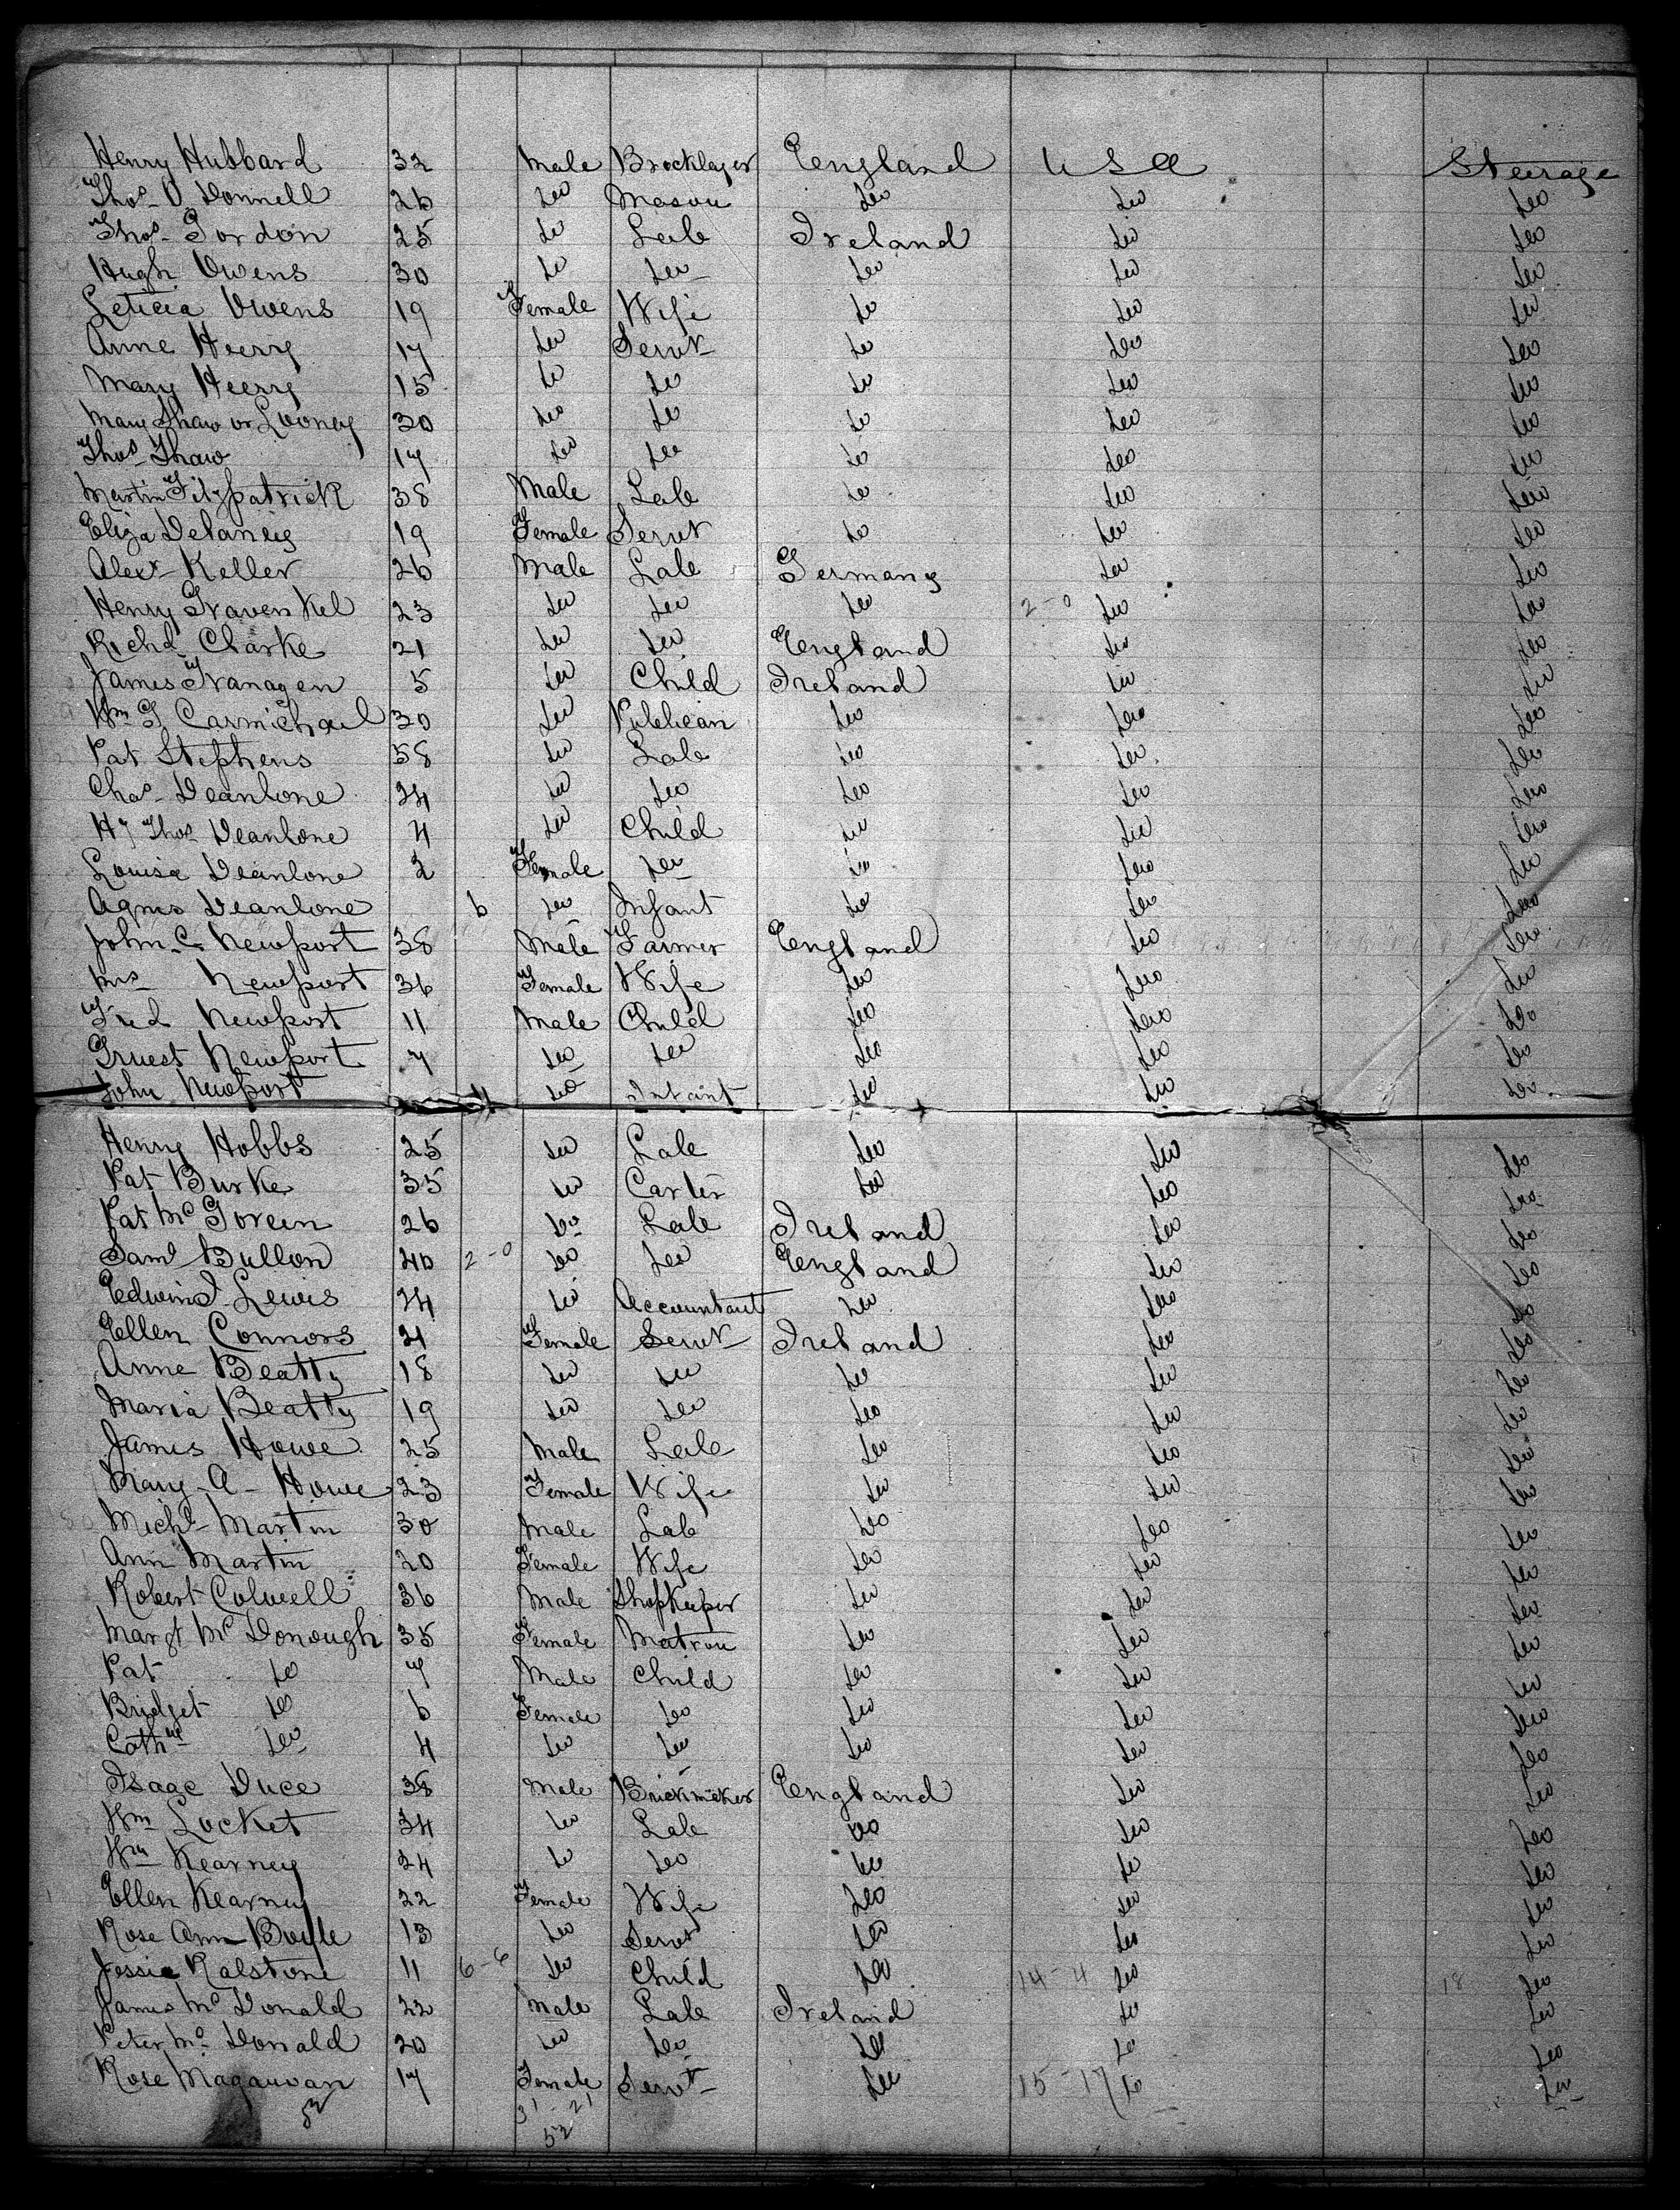 Henry Hubbard 32 Male Brocklayer England U S A Steerage
Thos. O Donnell 26 Do Mason Do Do Do
Thos. Gordon 25 Do Lab Ireland Do Do
Hugh Owens 30 Do Do Do Do Do
Leticia Owens 19 Female Wife Do Do Do
Anne Heery 17 Do Servt Do Do Do
Mary Heery 15 Do Do Do Do Do
Mary Thaw or Looney 30 Do Do Do Do Do
Thos. Thaw 17 Do Do Do Do Do
Martin Fitzpatrick 38 Male Lab Do Do Do
Eliza Delaney 19 Female Servt Do Do Do
Alexr Keller 26 Male Lab Germany Do Do
Henry Gravenkel 23 Do Do Do 2-0 Do Do
Richd Clarke 21 Do Do England Do Do
James Flanagen 5 Do Child Ireland Do Do
Wm G Carmichael 30 Do Publican Do Do Do
Pat Stephens 58 Do Lab Do Do Do
Chas. Deanlone 24 Do Do Do Do Do
Hy Thos Deanlone 4 Do Child Do Do Do
Louisa Deanlone 2 Female Do Do Do Do
Agnes Deanlone 6 Do Infant Do Do Do
John C. Newport 38 Male Farmer England Do Do
Mrs Newport 36 Female Wife Do Do Do
Fred Newport 11 Male Child Do Do Do
Ernest Newport 7 Do Do Do Do Do
John Newport Do Infant Do Do Do
Henry Hobbs 25 Do Lab Do Do Do
Pat Burke 35 Do Carter Do Do Do
Pat McGovern 26 Do Lab Ireland Do Do
Saml Bullon 40 2-0 Do Do England Do Do
Edwin J. Lewis 24 Do Accountant Do Do Do
Ellen Connors 21 Female Servt Ireland Do Do
Anne Beatty 18 Do Do Do Do Do
Maria Beatty 19 Do Do Do Do Do
James Howe 25 Male Lab Do Do Do
Mary A. Howe 23 Female Wife Do Do Do
Michl Martin 30 Male Lab Do Do Do
Ann Martin 20 Female Wife Do Do Do
Robert Colwell 36 Male Shopkeeper Do Do Do
Margt McDonough 35 Female Matron Do Do Do
Pat Do 7 Male Child Do Do Do
Bridget Do 6 Female Do Do Do Do
Cathne Do 4 Do Do Do Do Do
Isaac Duce 38 Male Brickmaker England Do Do
Wm Locket 34 Do Lab Do Do Do
Wm Kearney 24 Do Do Do Do Do
Ellen Kearney 22 Female Wife Do Do Do
Rose Ann Boyle 13 Do Servt Do Do Do
Jessie Ralstone 11 6-6 Do Child Do 14-4 Do 18 Do
James McDonald 22 Male Lab Ireland Do Do
Peter McDonald 20 Do Do Do Do Do
Rose Magauvan 17 Female Servt Do 15-17 Do Do
52 31-21
52